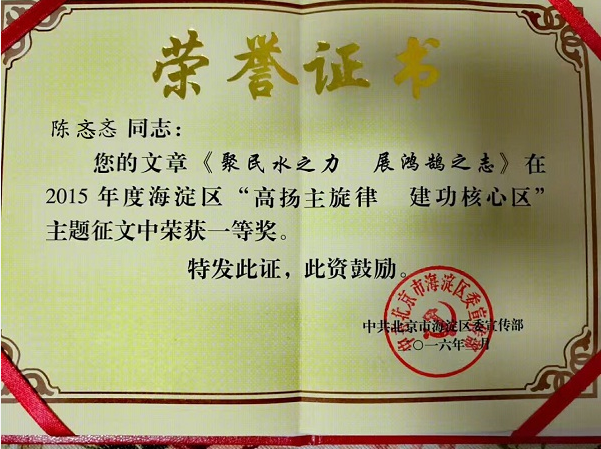 荣誉证书
陈忞忞 同志：
您的文章《聚民水之力 展鸿鹄之志》在
2015年度海淀区“高扬主旋律 建功核心区”
主题征文中荣获一等奖。
特发此证，此资鼓励。
中共北京市海淀区委宣传部
二〇一六年 月
中共北京市海淀区委宣传部